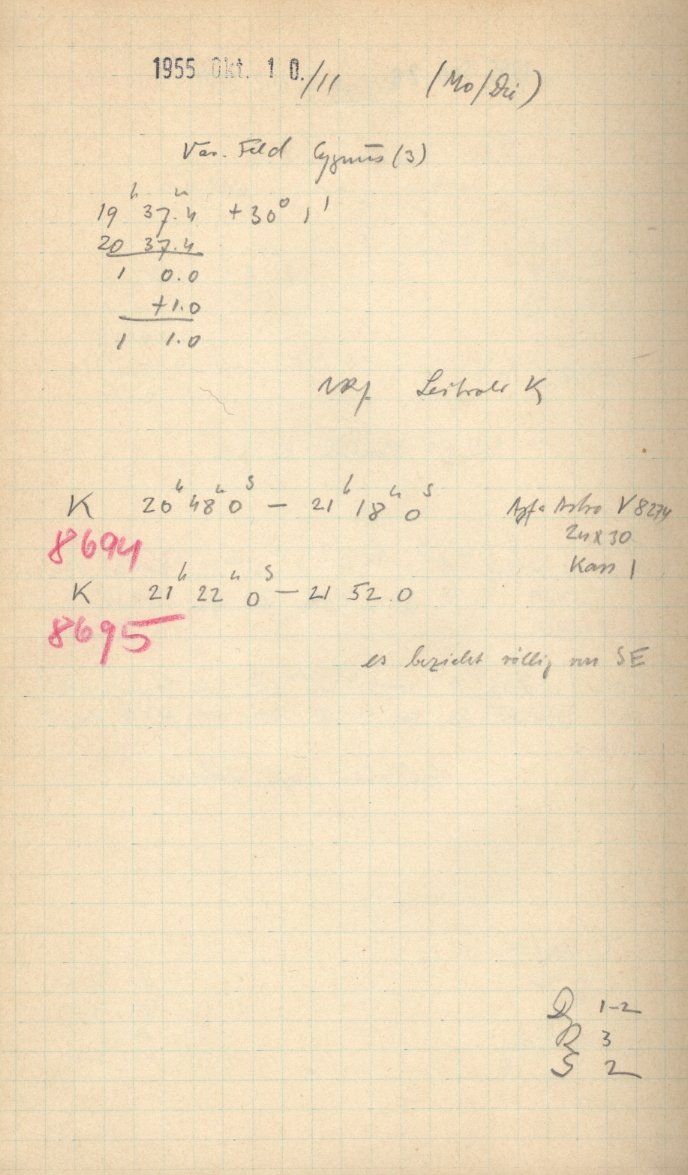 1955 Okt. 10./11 (Mo/Die)
Var. Feld Cygnus (3)
19h 37m.4 +30° 1'
20 37.4
1 0.0
+1.0
1 1.0
K
K 20h 48m 0s – 21h 18m 0s Agfa Astro V 8274
24x30
8694 Kass 1
K 21h 22m 0s – 21 52.0
8695
es bezieht völlig von SE
1-2
R 3
S 2